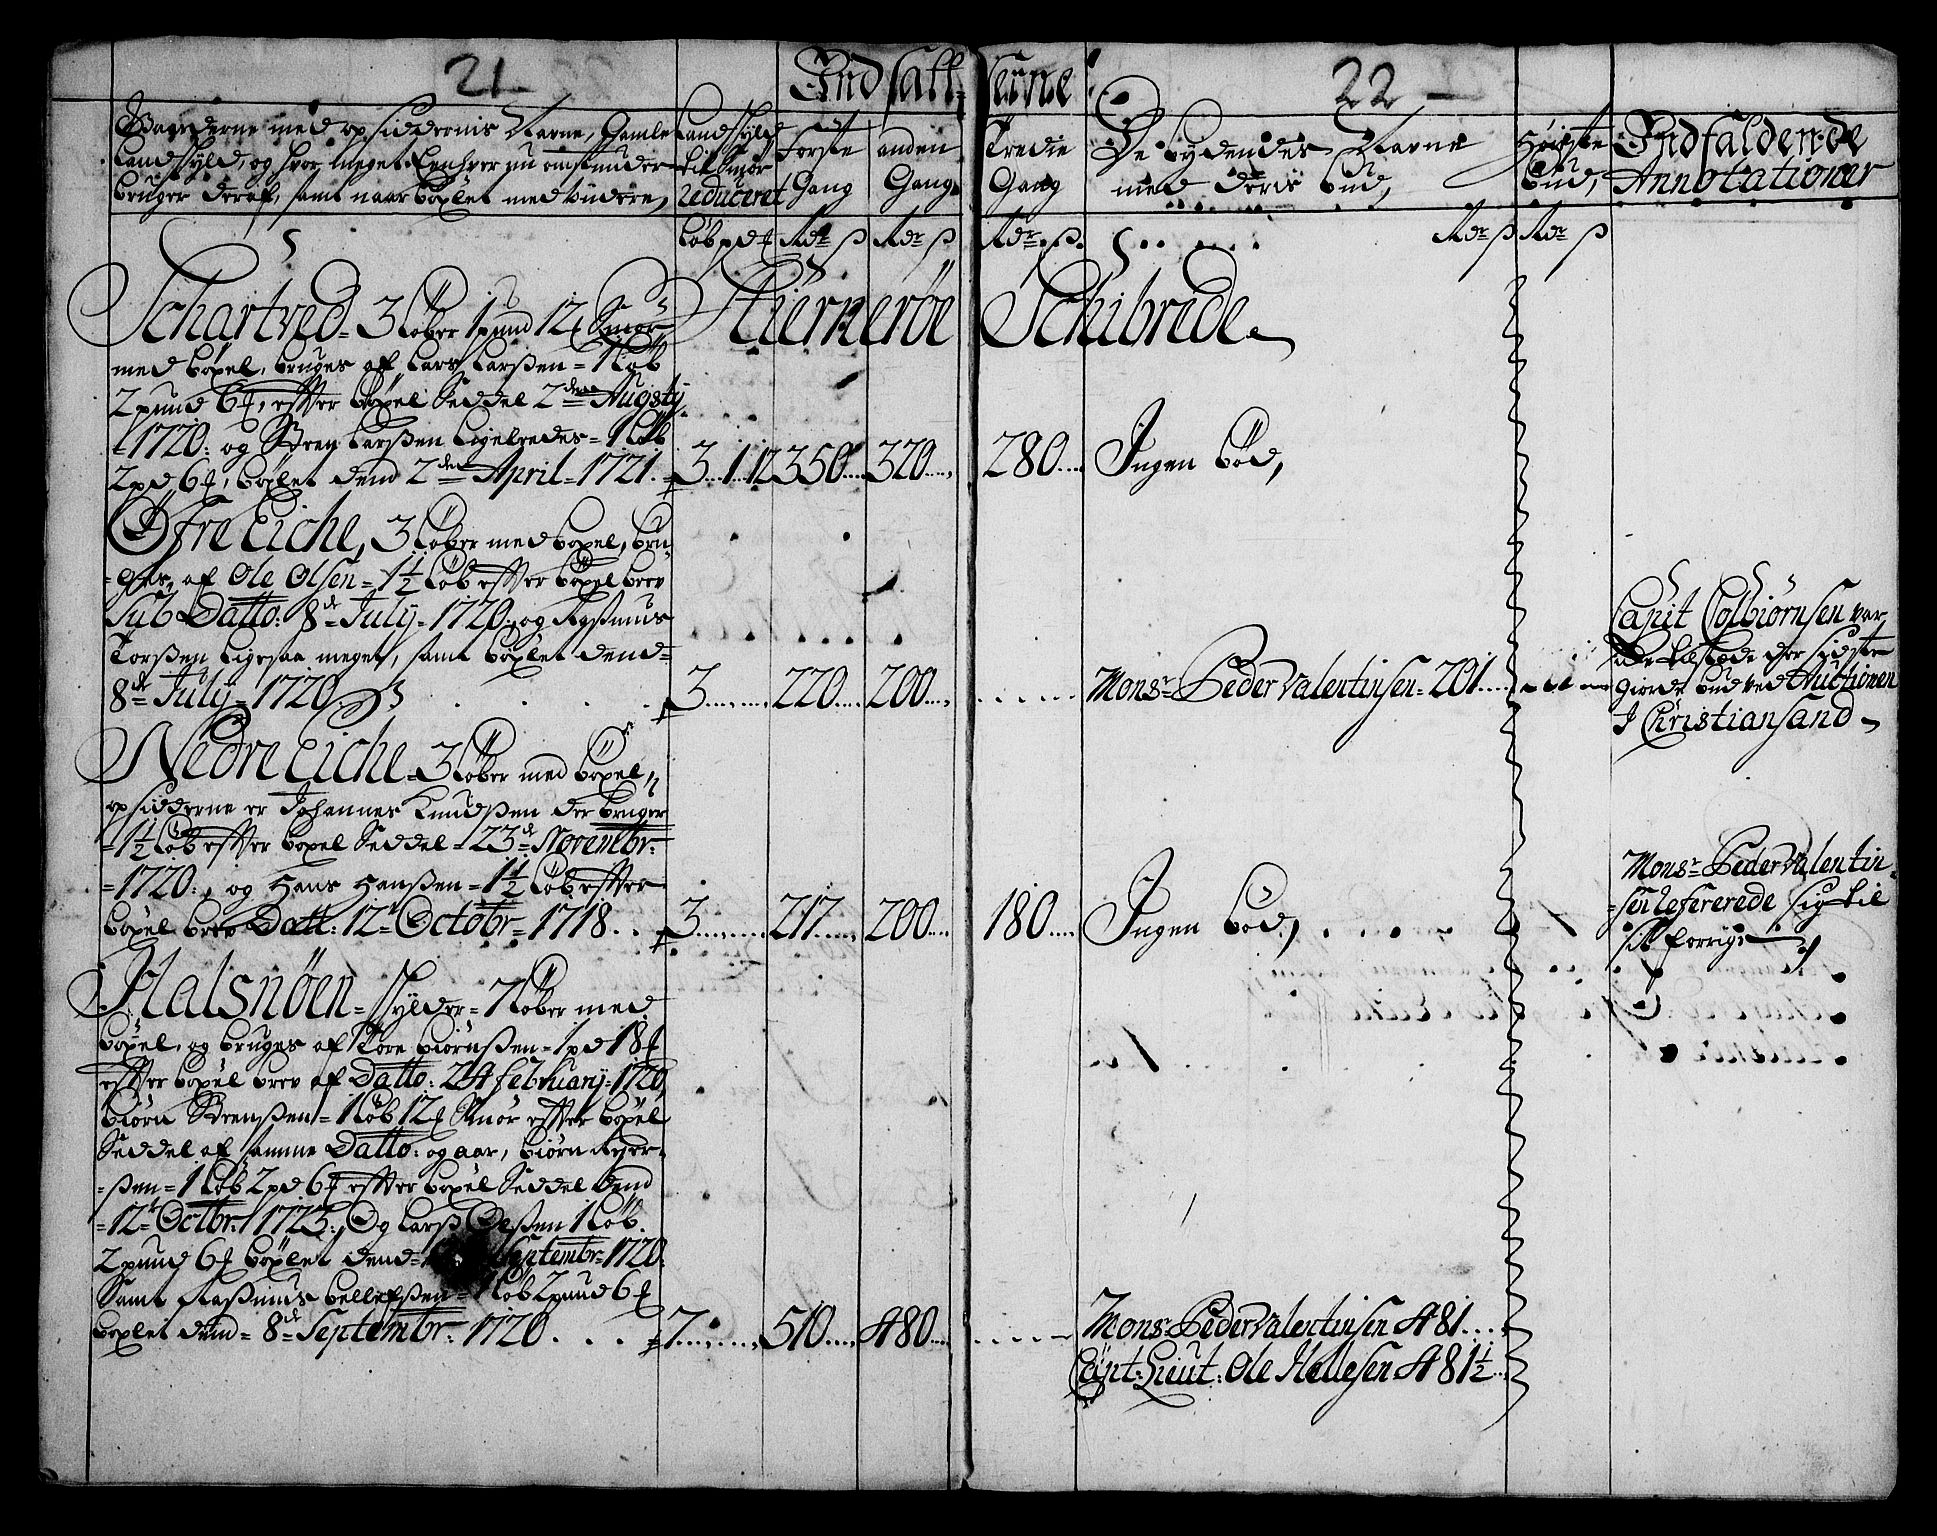 21
22
Indsatt- serne
Gaarderne med opsiddernis Navne, Gamle
Landskyld, og hvor meget Eenhver nu omstunder
bruger deraf, samt naar böxlet med videre,
Landskyld
til Smör
reduceret
Første
Gang
anden
Gang
Tredie
Gang
De bydendes Navne
med deris bud,
Høieste
Bud,
Indfaldende
Annotationer
Löb pd Rdr ß Rdr ß Rdr ß Rdr ß Rdr ß
Hiernerøe Schibrede
Schartved = 3 Löber 1 pund 12 Smör
med böxel, bruges af Lars Larsen = 1 Löb
2 pund 6, efter böxel Seddel 2den Augstij
1720: og Sven Larsen Ligeledes = 1 Löb
2 pd 6, böxlet dend 2den April = 1721. 3 . . 1 . . 12 350 . . . . 320 . . . . 280 . . . . Ingen bød,
Øfre Eiche, 3 Löber med böxel, bru-
ges, af Ole Olsen = 1½ Löb efter böxel brev
Sub Datto: 8de July = 1720, og Rasmus
Torsen Ligesaa meget, samt böxlet dend
8de July = 1720. 3 . . . . 220 . . . . 200 . . . . Monsr Peder Valentinsen = 201 . . . .
Capit Colbiørnsen var
icke tilstæde der sidste
giorde bud ved Auctionen
I Christiansand
Nedre Eiche = 3 Löber med böxel,
opsidderne er Johannes Knudsen der bruger
1½ Löb efter böxel Seddel = 23de Novembr:
= 1720:, og Hans Hansen = 1½ Löb efter
böxel brev Datt: 12te Octobr = 1718 . . 3 . . . . 217 . . . . 200 . . . . 180 . . . . Ingen bød,
Monsr Peder Valentin-
sen refererede sig til
sit forrige
Halsnøen = skylder = 7 Löber med
böxel, og bruges af Tore Biørnsen = 1 pd 18
efter böxel brev af Datto: 24 february = 1720,
Biörn Svensen = 1 Löb 12 Smör efter böxel
Seddel af samme Datto: og aar, Biörn
sen = 1 Löb 2 pd 6 efter böxel Seddel dend
= 12te Octbr: 1723:, Og Lars Olsen 1 Löb
2 pund 6 böxlet dend Septembr = 1720.
Samt Rasmus = 1 Löb 2 pund 6
böxlet dend = 8de Septembr: 1720 . . . . 7 . . . . 510 . . . . 480 . . . . Monsr Peder Valentinsen 481 . . . .
Capt: Lieut: Ole Hellesen 481½ . .